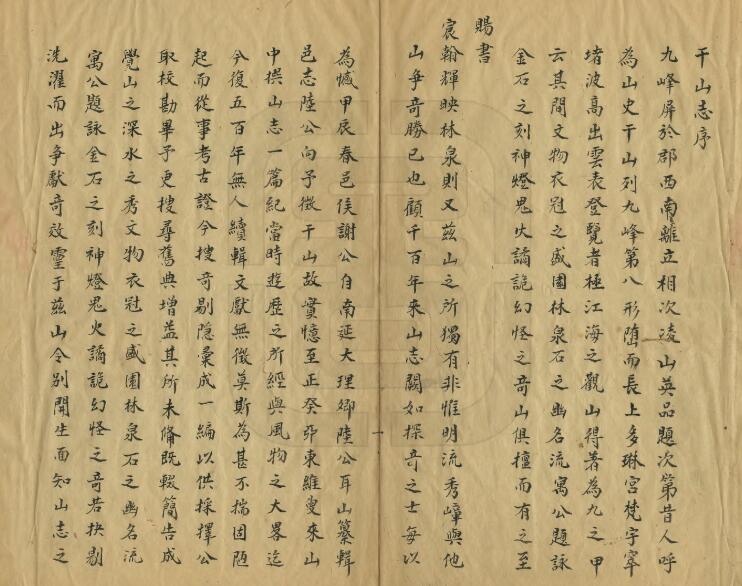 干山志序
九峰屏於郡西南離立相次淩山英品題次第昔人呼
為山史干山列九峰第八形墮而長上多琳宮梵宇窣
堵波高出雲表登覽者極江海之觀山得著為九之甲
云其間文物衣冠之盛園林泉石之幽名流寓公題詠
金石之刻神燈鬼火譎詭幻怪之奇山俱擅而有之至
賜書
宸翰輝映林泉則又茲山之所獨有非惟明流秀嶂與他
山爭奇勝已也顧千百年來山志闕如探奇之士每以
為憾甲辰春邑侯謝公自南延大理鄉陸公耳山纂輯
邑志陸公向予徵干山故實憶至正癸卯東維叟來山
中撰山志一篇紀當時遊歷之所經與風物之大畧迄
今復五百年無人續輯文獻無徵莫斯為甚不揣固陋
起而從事考古證今搜奇剔隱彙成一編以供採擇公
取校勘畢予更搜尋舊典增益其所未備既輟簡告成
覺山之深水之秀文物衣冠之盛園林泉石之幽名流
寓公題詠金石之刻神燈鬼火譎詭幻怪之奇若抉剔
洗濯而出爭獻奇效靈于茲山令別開生面知山志之